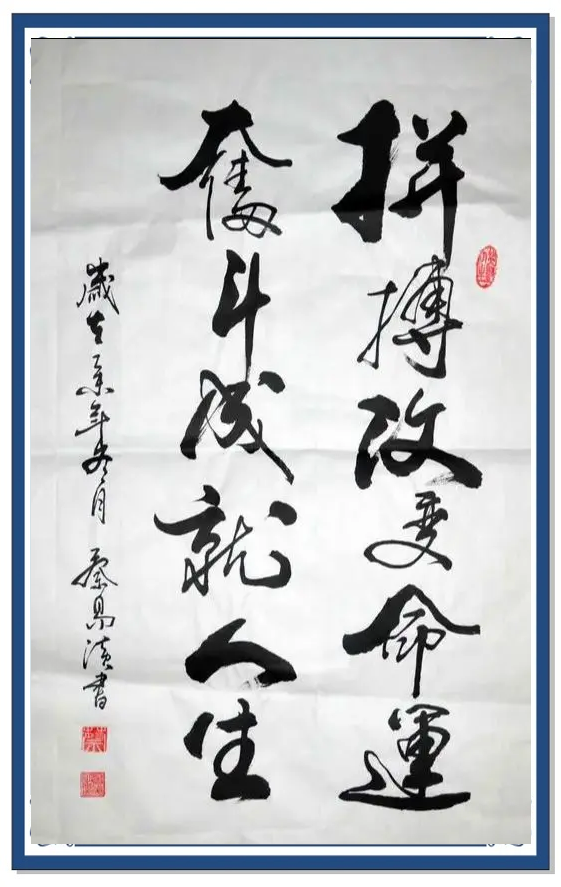 拼搏改变命運
奮斗成就人生
歲在 年冬月 書